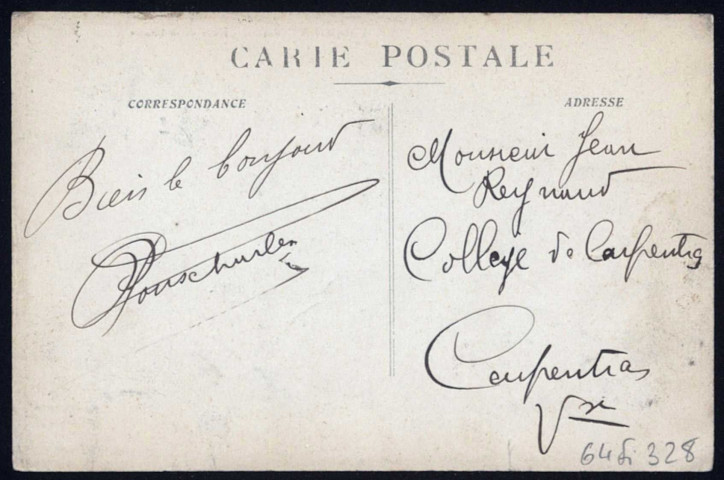 CARTE POSTALE
CORRESPONDANCE
ADRESSE
Bien le bonjour
Monsieur Jean
Reynaud
Collège de Carpentras
Carpentras
Vse
64 fi 328